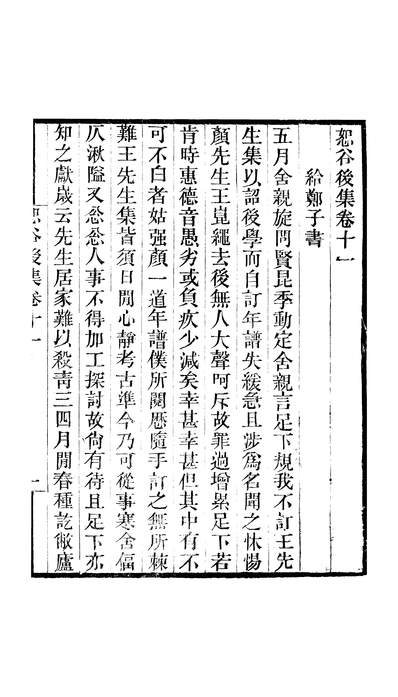 恕谷後集卷十一
給鄭子書
五月舍親旋問賢昆季動定舍親言足下規我不訂王先
生集以詔後學而自訂年譜失緩急且涉爲名聞之怵惕
顏先生王崑繩去後無人大聲呵斥故罪過增累足下若
肯時惠德音愚劣或負疚少減矣幸甚幸甚但其中有不
可不白者姑强顏一道年譜僕所閱歷隨手訂之無所棘
難王先生集皆須日閒心靜考古準今乃可從事寒舍偪
仄湫隘又忩忩人事不得加工探討故尙有待且足下亦
知之獻歲云先生居家難以殺靑三四月閒春種訖敝廬
恕谷後集卷十一
一